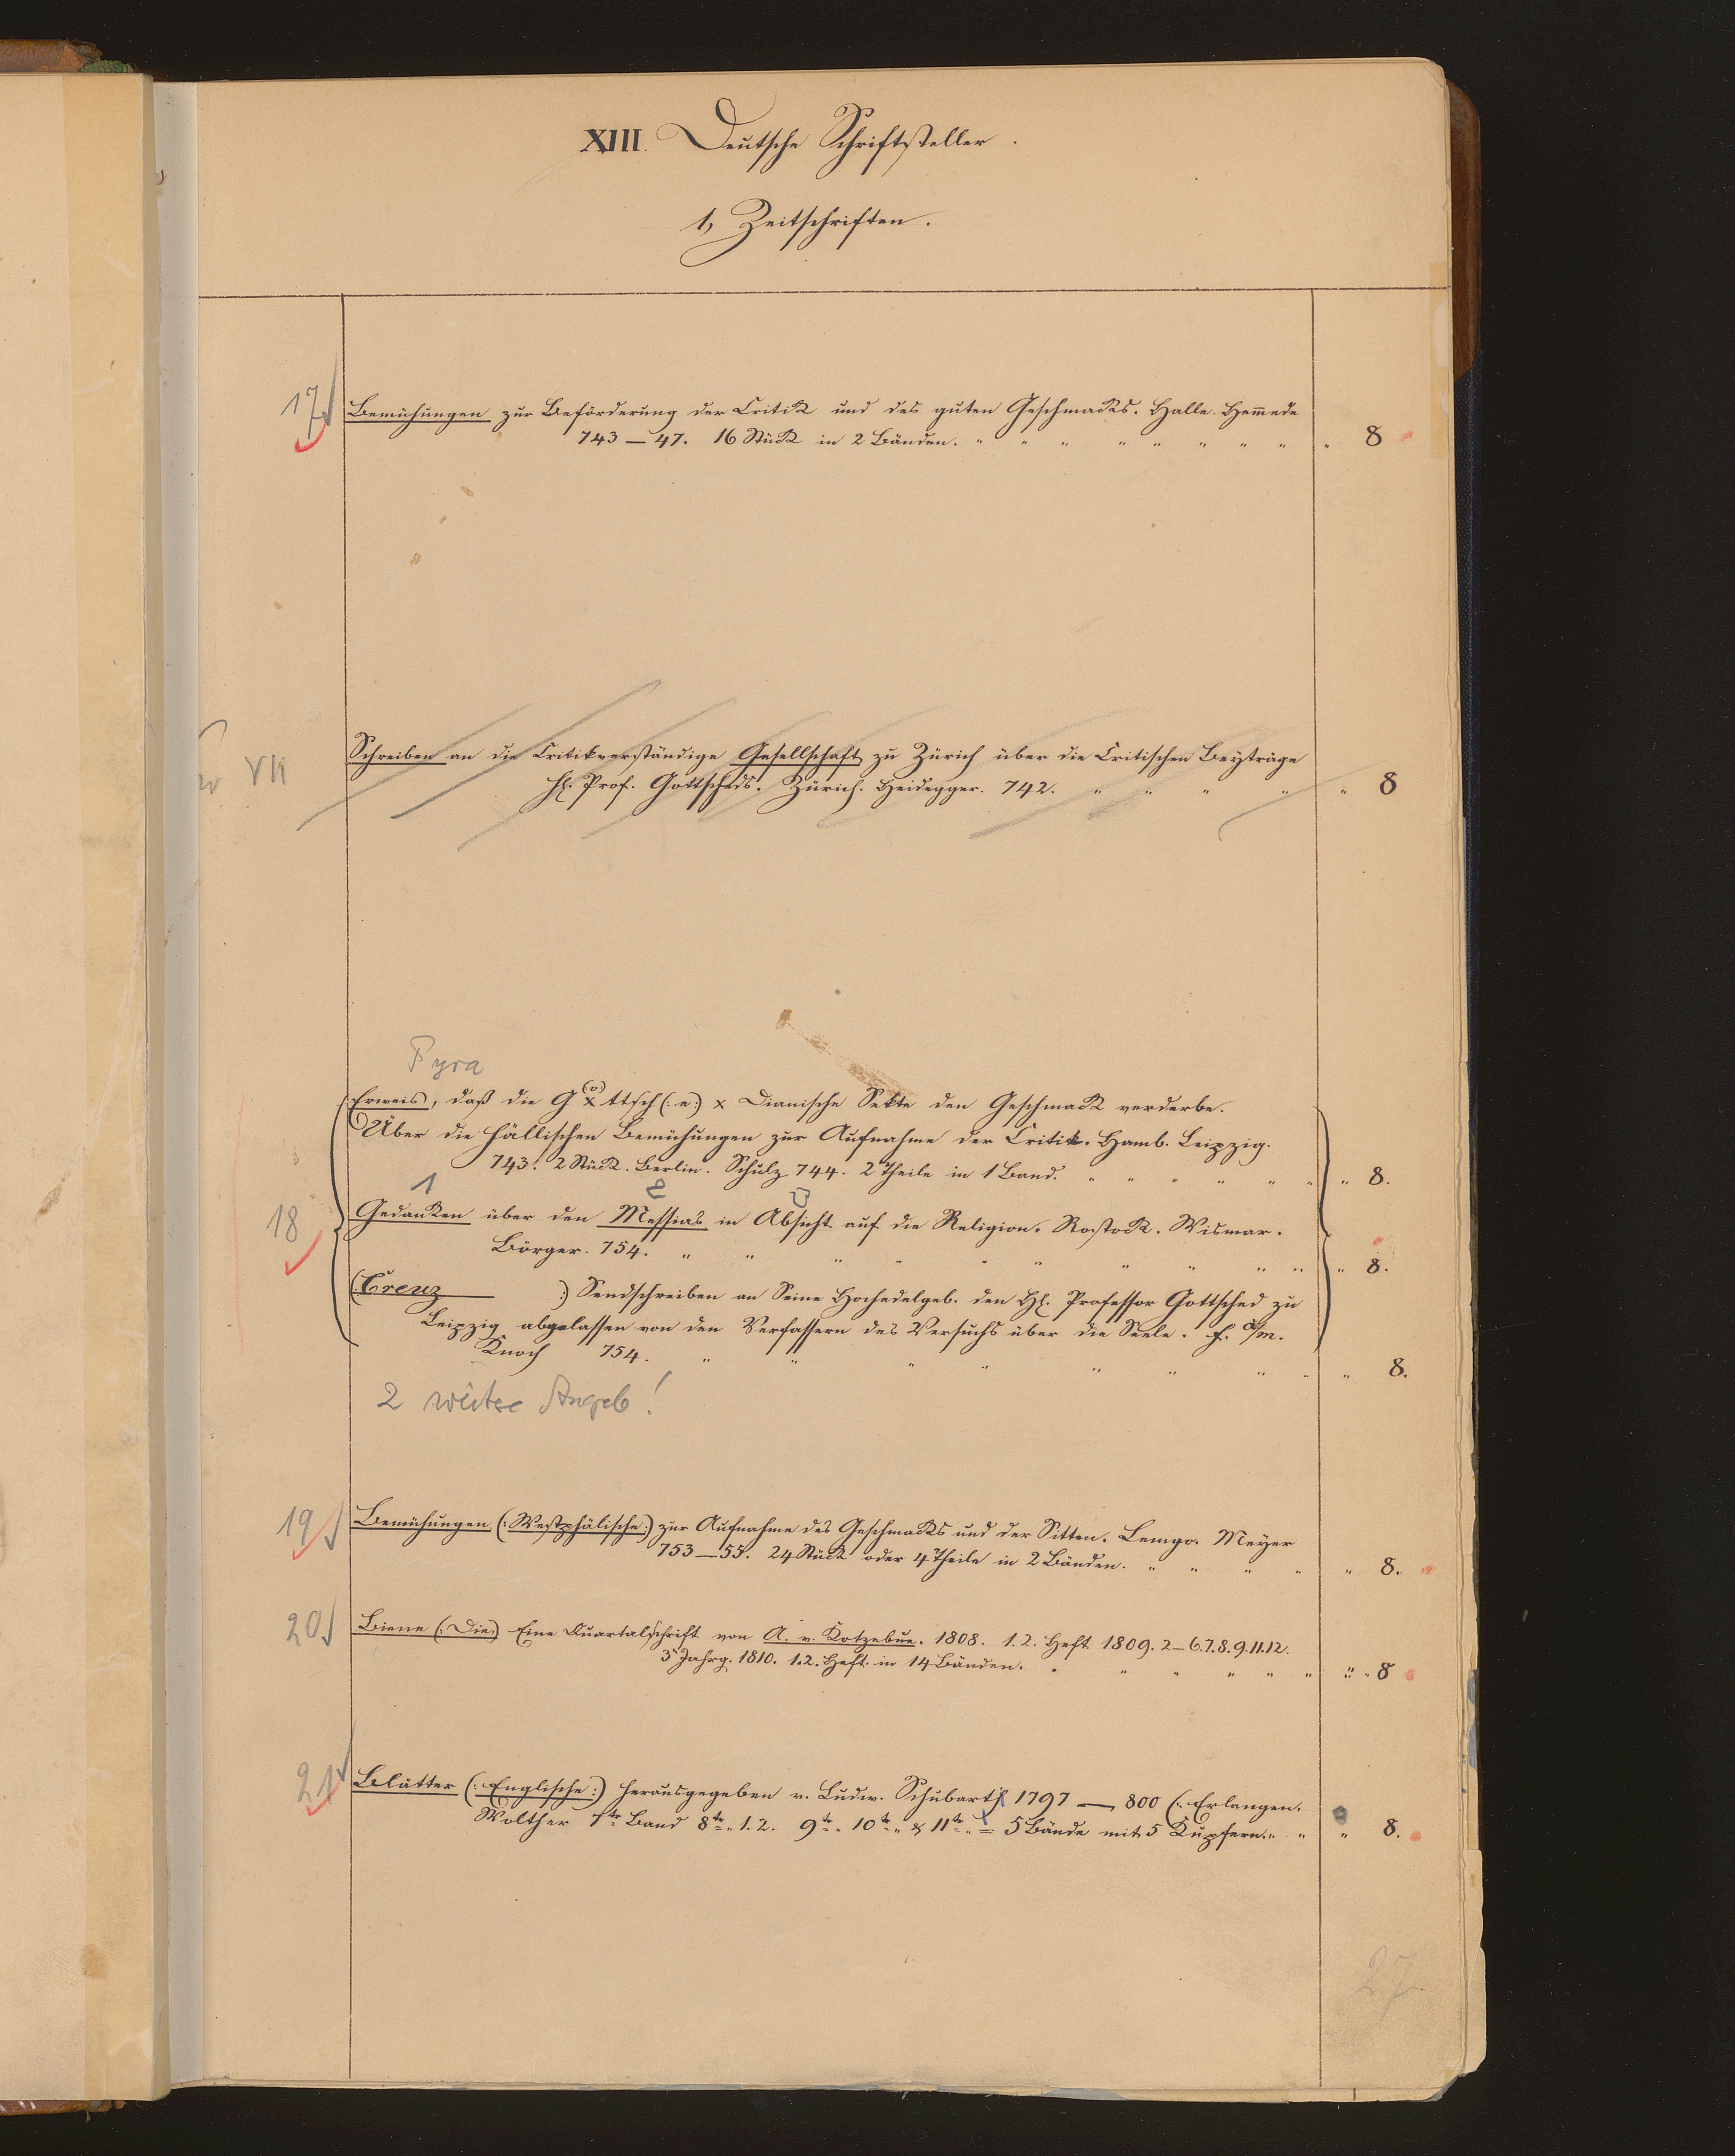 XIII. Deutsche Schriftsteller.
1, Zeitschriften.
17 Bemühungen zur Beförderung der Critik und des guten Geschmacks. Halle. Hem̄ede
743–47. 16 Stück in 2 Bänden. " " " " " " " " " 8
VII Schreiben an die Critikverständige Gesellschaft zu Zürich über die Critischen Beyträge
H. Prof. Gottscheds. Zürich. Heidegger. 742. " " " " " 8
Pyra
Erweis, daß die G(o)x ttsch(:e:) x Dianische Sekte den Geschmack verderbe.
Über die Hällischen Bemühungen zur Aufnahme der Critik. Hamb. Leipzig.
743. 2 Stück. Berlin. Schulz 744. 2 Theile in 1 Band. " " " " " " " 8.
1 2
18 Gedanken über den Messias in Absicht auf die Religion. Rostock. Wismar.
Börger. 754. " " " " " " " " " " " 8.
(Creuz :) Sendschreiben an Seine Hochedelgeb. den H. Professor Gottsched zu
Leipzig abgelassen von den Verfassern des Versuchs über die Seele. f. a/m.
Knoch 754. " " " " " " " " " 8.
2 weitere Angeb!
19 Bemühungen (:Westphälische:) zur Aufnahme des Geschmacks und der Sitten. Lemgo. Meyer
753–55. 24 Stück oder 4 Theile in 2 Bänden. " " " " " 8.
20 Biene (:Die:) Eine Quartalschrift von A. v. Kotzebue. 1808. 1.2. Heft 1809. 2–6.7.8.9.11.12.
3r Jahrg. 1810. 1.2. Heft. in 14 Bänden. " " " " " " " " 8
21 Blätter (:Englische:) herausgegeben v. Ludw. Schubart 1797 — 800 (:Erlangen.
Walther 1te Band 8te " 1.2. 9te " 10te " & 11te " = 5 Bände mit 5 Kupfern. " " " 8.
27